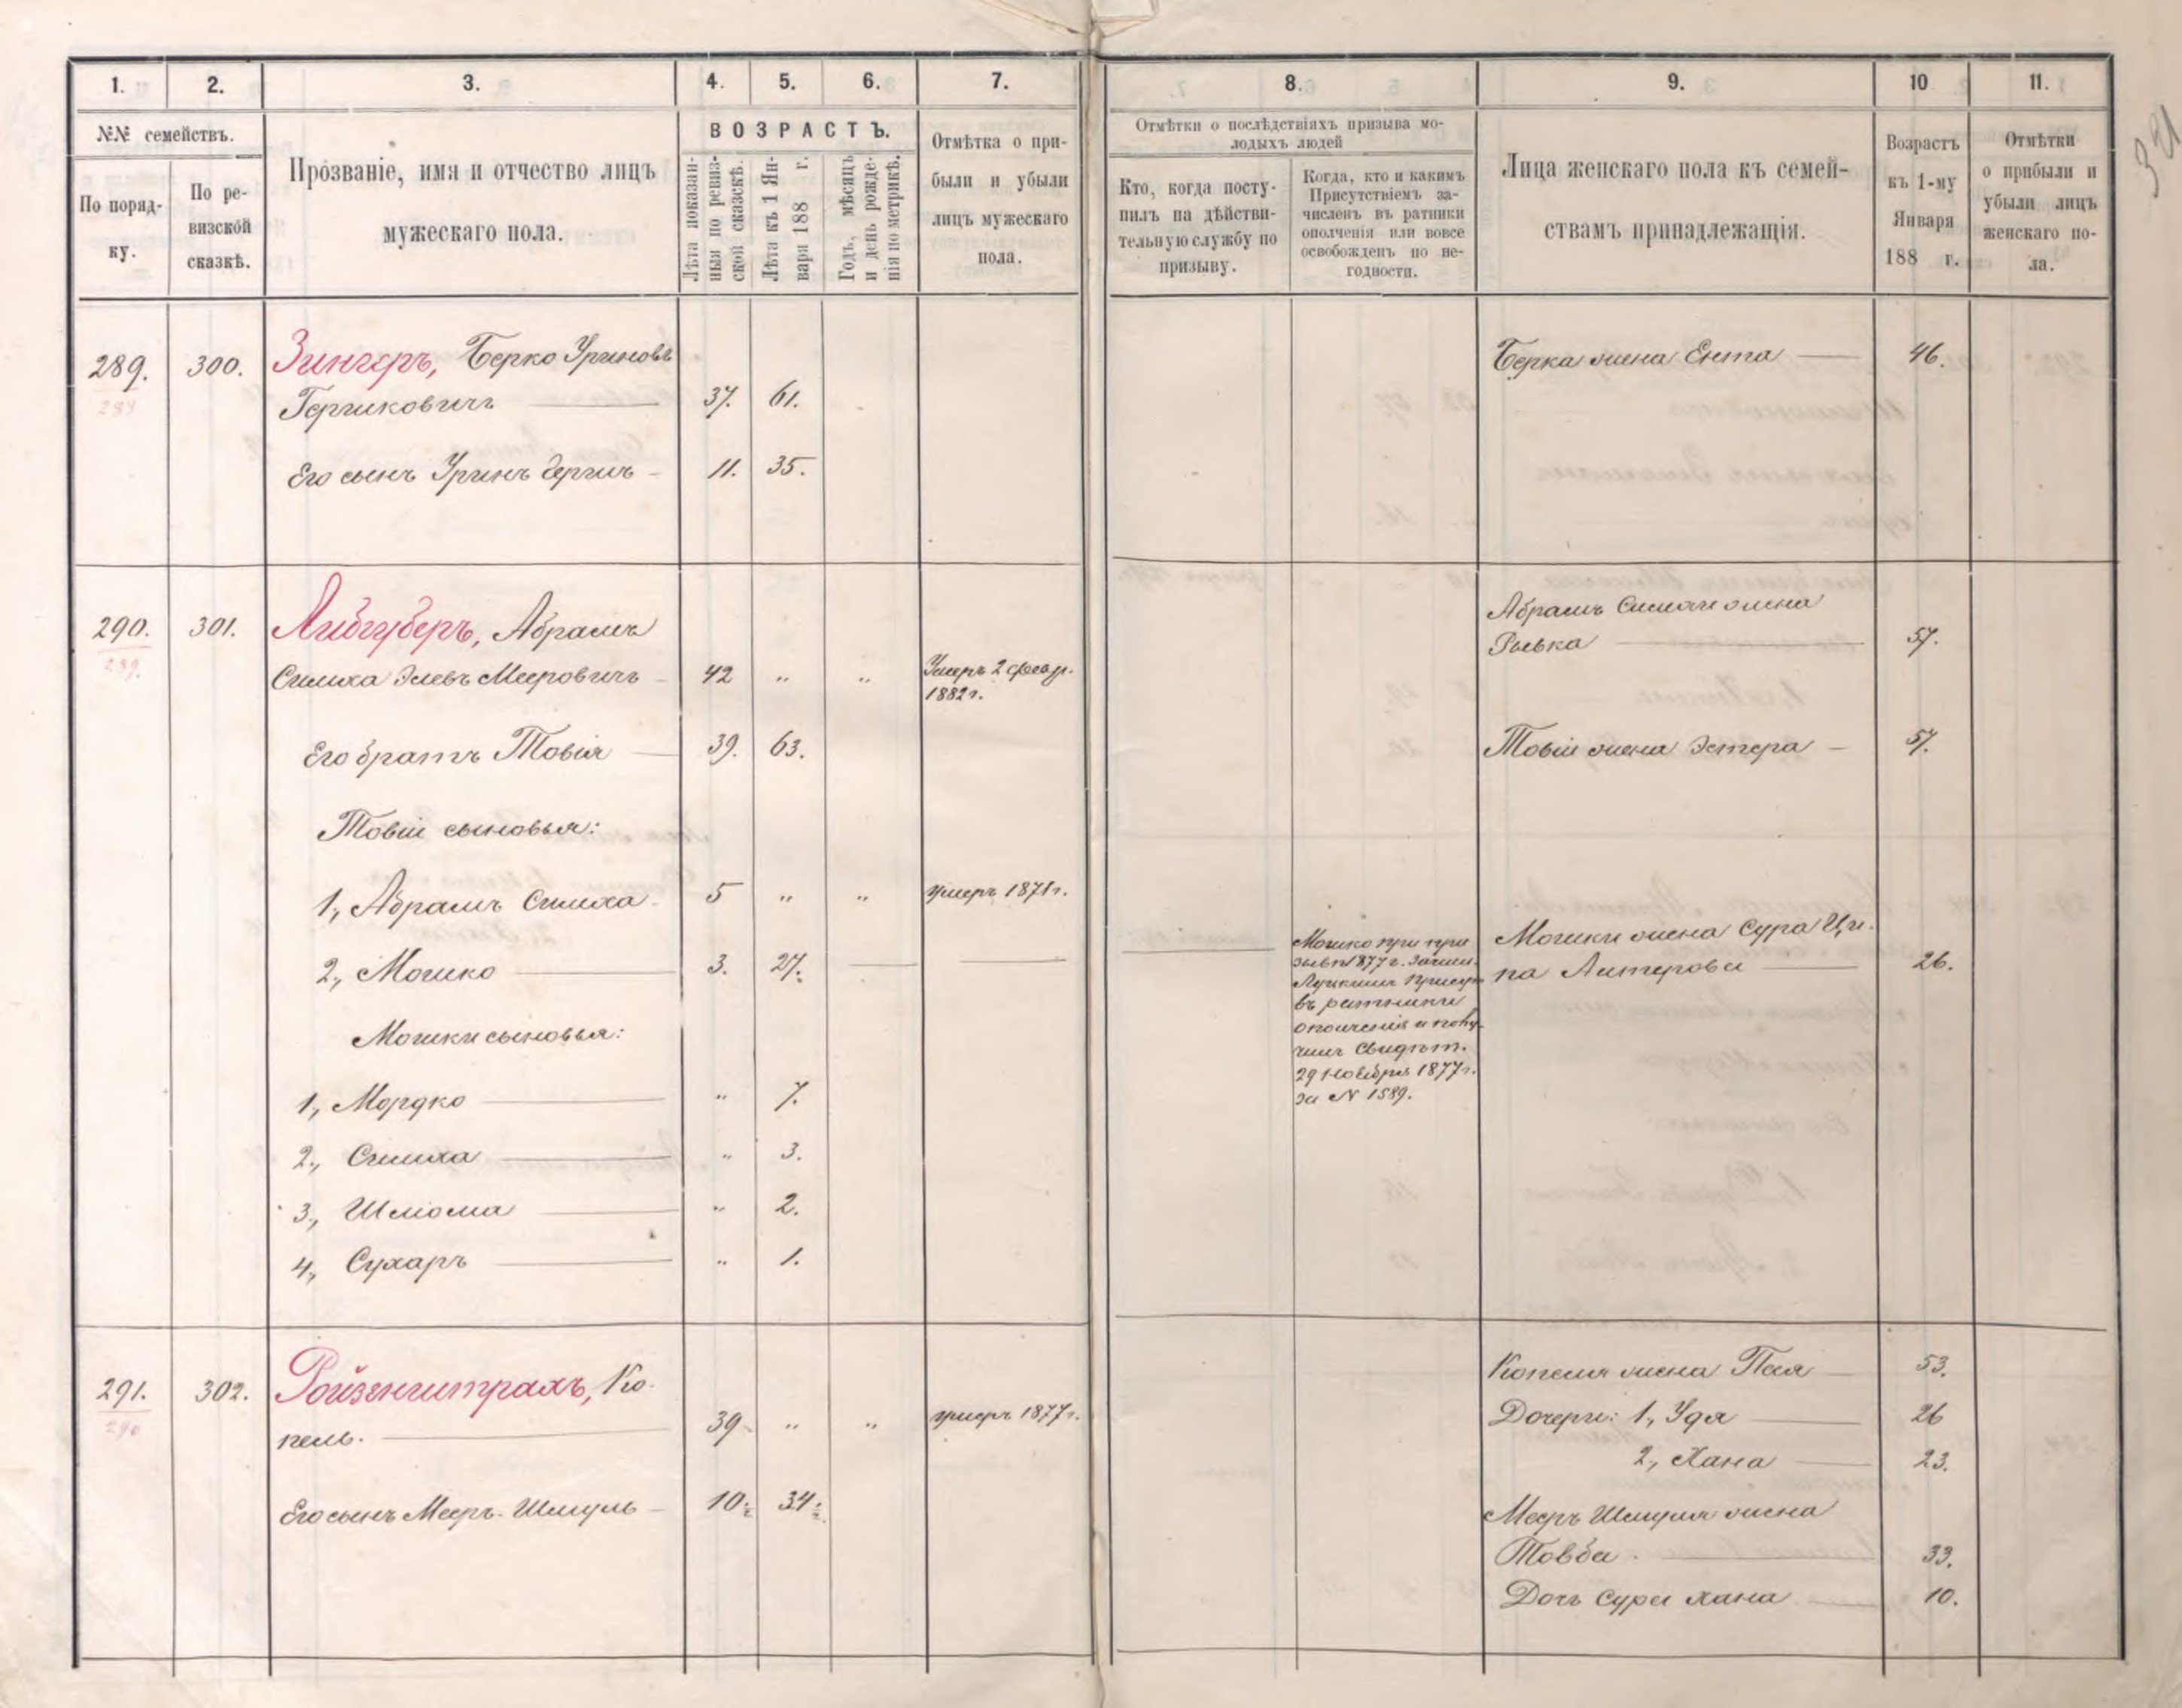 1.
2.
3.
4.
5.
6.
7.
8.
9.
10
11.
№№ семействъ.
По поряд-
ку.
По ре-
визской
сказкѣ.
Прозваніе, имя и отчество лицъ
мужескаго пола.
ВОЗРАСТЪ.
Лѣта показан-
ныя по ревиз-
ской сказкѣ.
Лѣта къ 1 Ян-
варя 188 г.
Годъ, мѣсяцъ
и день рожде-
нія по метрикѣ.
Отмѣтка о при-
были и убыли
лицъ мужескаго
пола.
Отмѣтки о послѣдствіяхъ призыва мо-
лодыхъ людей
Кто, когда посту-
пилъ на дѣйстви-
тельную службу по
призыву.
Когда, кто и какимъ
Присутствіемъ за-
численъ въ ратники
ополченія или вовсе
освобожденъ по не-
годности.
Лица женскаго пола къ семей-
ствамъ принадлежащія.
Возрастъ
къ 1-му
Января
188 г.
Отмѣтки
о прибыли и
убыли лицъ
женскаго по-
ла.
289. 300. Зингеръ, Берко Уринъ
288 Гершковичъ 37. 61.
Его сынъ Уринъ Гершъ 11. 35.
Берка жена Ента 46.
290. 301. Либгуберъ, Абрамъ
289. Симха Элевъ Мееровичъ 42 " " Умеръ 2 февр.
1882 г.
Его братъ Товія 39. 63.
Товіи сыновья:
1, Абрамъ Симха 5 " " умеръ 1871 г.
2, Мошко 3. 27.
Мошки сыновья:
1, Мордко " 7.
2, Симха " 3.
3, Шліома " 2.
4, Сухаръ " 1.
Мошко при при
зывѣ 1877 г. зачисл.
Луцкимъ Присут
въ ратники
ополченія и полу-
чилъ свидѣт.
29 Ноября 1877 г.
за N 1589.
Абрамъ Симхи жена
Рывка 57.
Товіи жена Эстера 57.
Мошки жена Сура Ци-
па Литерова 26.
291. 302. Ройзенштрахъ, Ко-
290 пель. 39 " " умеръ 1877 г.
Его сынъ Мееръ-Шмуль 10. 34.
Копеля жена Пея 53.
Дочери: 1, Удя 26
2, Хана 23.
Мееръ Шмуля жена
Товба 33.
Дочь Сура Хана 10.